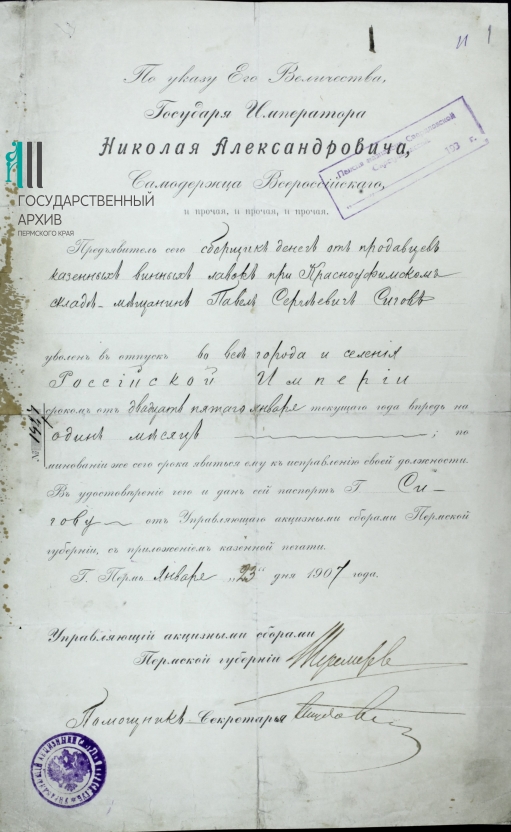 1
И 1
По указу Его Величества,
Государя Императора
Николая Александровича,
Самодержца Всероссійскаго,
и прочая, и прочая, и прочая.
190 г.
ГОСУДАРСТВЕННЫЙ
АРХИВ
ПЕРМСКОГО КРАЯ
Предъявитель сего сборщикъ денегъ отъ продавцевъ
казенныхъ винныхъ лавокъ при Красноуфимскомъ
складѣ мѣщанинъ Павелъ Сергѣевичъ Сиговъ
уволенъ въ отпускъ во всѣ города и селенія
Россійской Имперіи
срокомъ отъ двадцать пятаго января текущаго года впредь на
одинъ мѣсяцъ ; по
минованіи же сего срока явиться ему къ исправленію своей должности.
Въ удостовѣреніе чего и данъ сей паспортъ Г. Си-
гову отъ Управляющаго акцизными сборами Пермской
губерніи, съ приложеніемъ казенной печати.
Г. Пермь Января „23“ дня 1907 года.
№
Управляющій акцизными сборами
Пермской губерніи
Помощникъ Секретаря